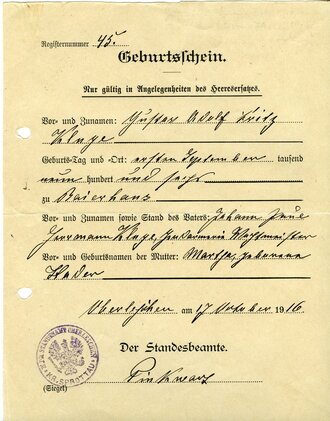 Registernummer 45.
Geburtsschein.
Nur gültig in Angelegenheiten des Heeresersatzes.
Vor- und Zunamen: Gustav Adolf Fritz
Kluge
Geburts-Tag und -Ort: ersten September tausend
neun hundert und sechs
zu Baierhaus
Vor- und Zunamen sowie Stand des Vaters: Johann Paul
Hermann Kluge, Gendarmerie Wachtmeister
Vor- und Geburtsnamen der Mutter: Martha, geborene
am 17 Oktober 1916
Der Standesbeamte.
(Siegel)
KR. SPROTTAU